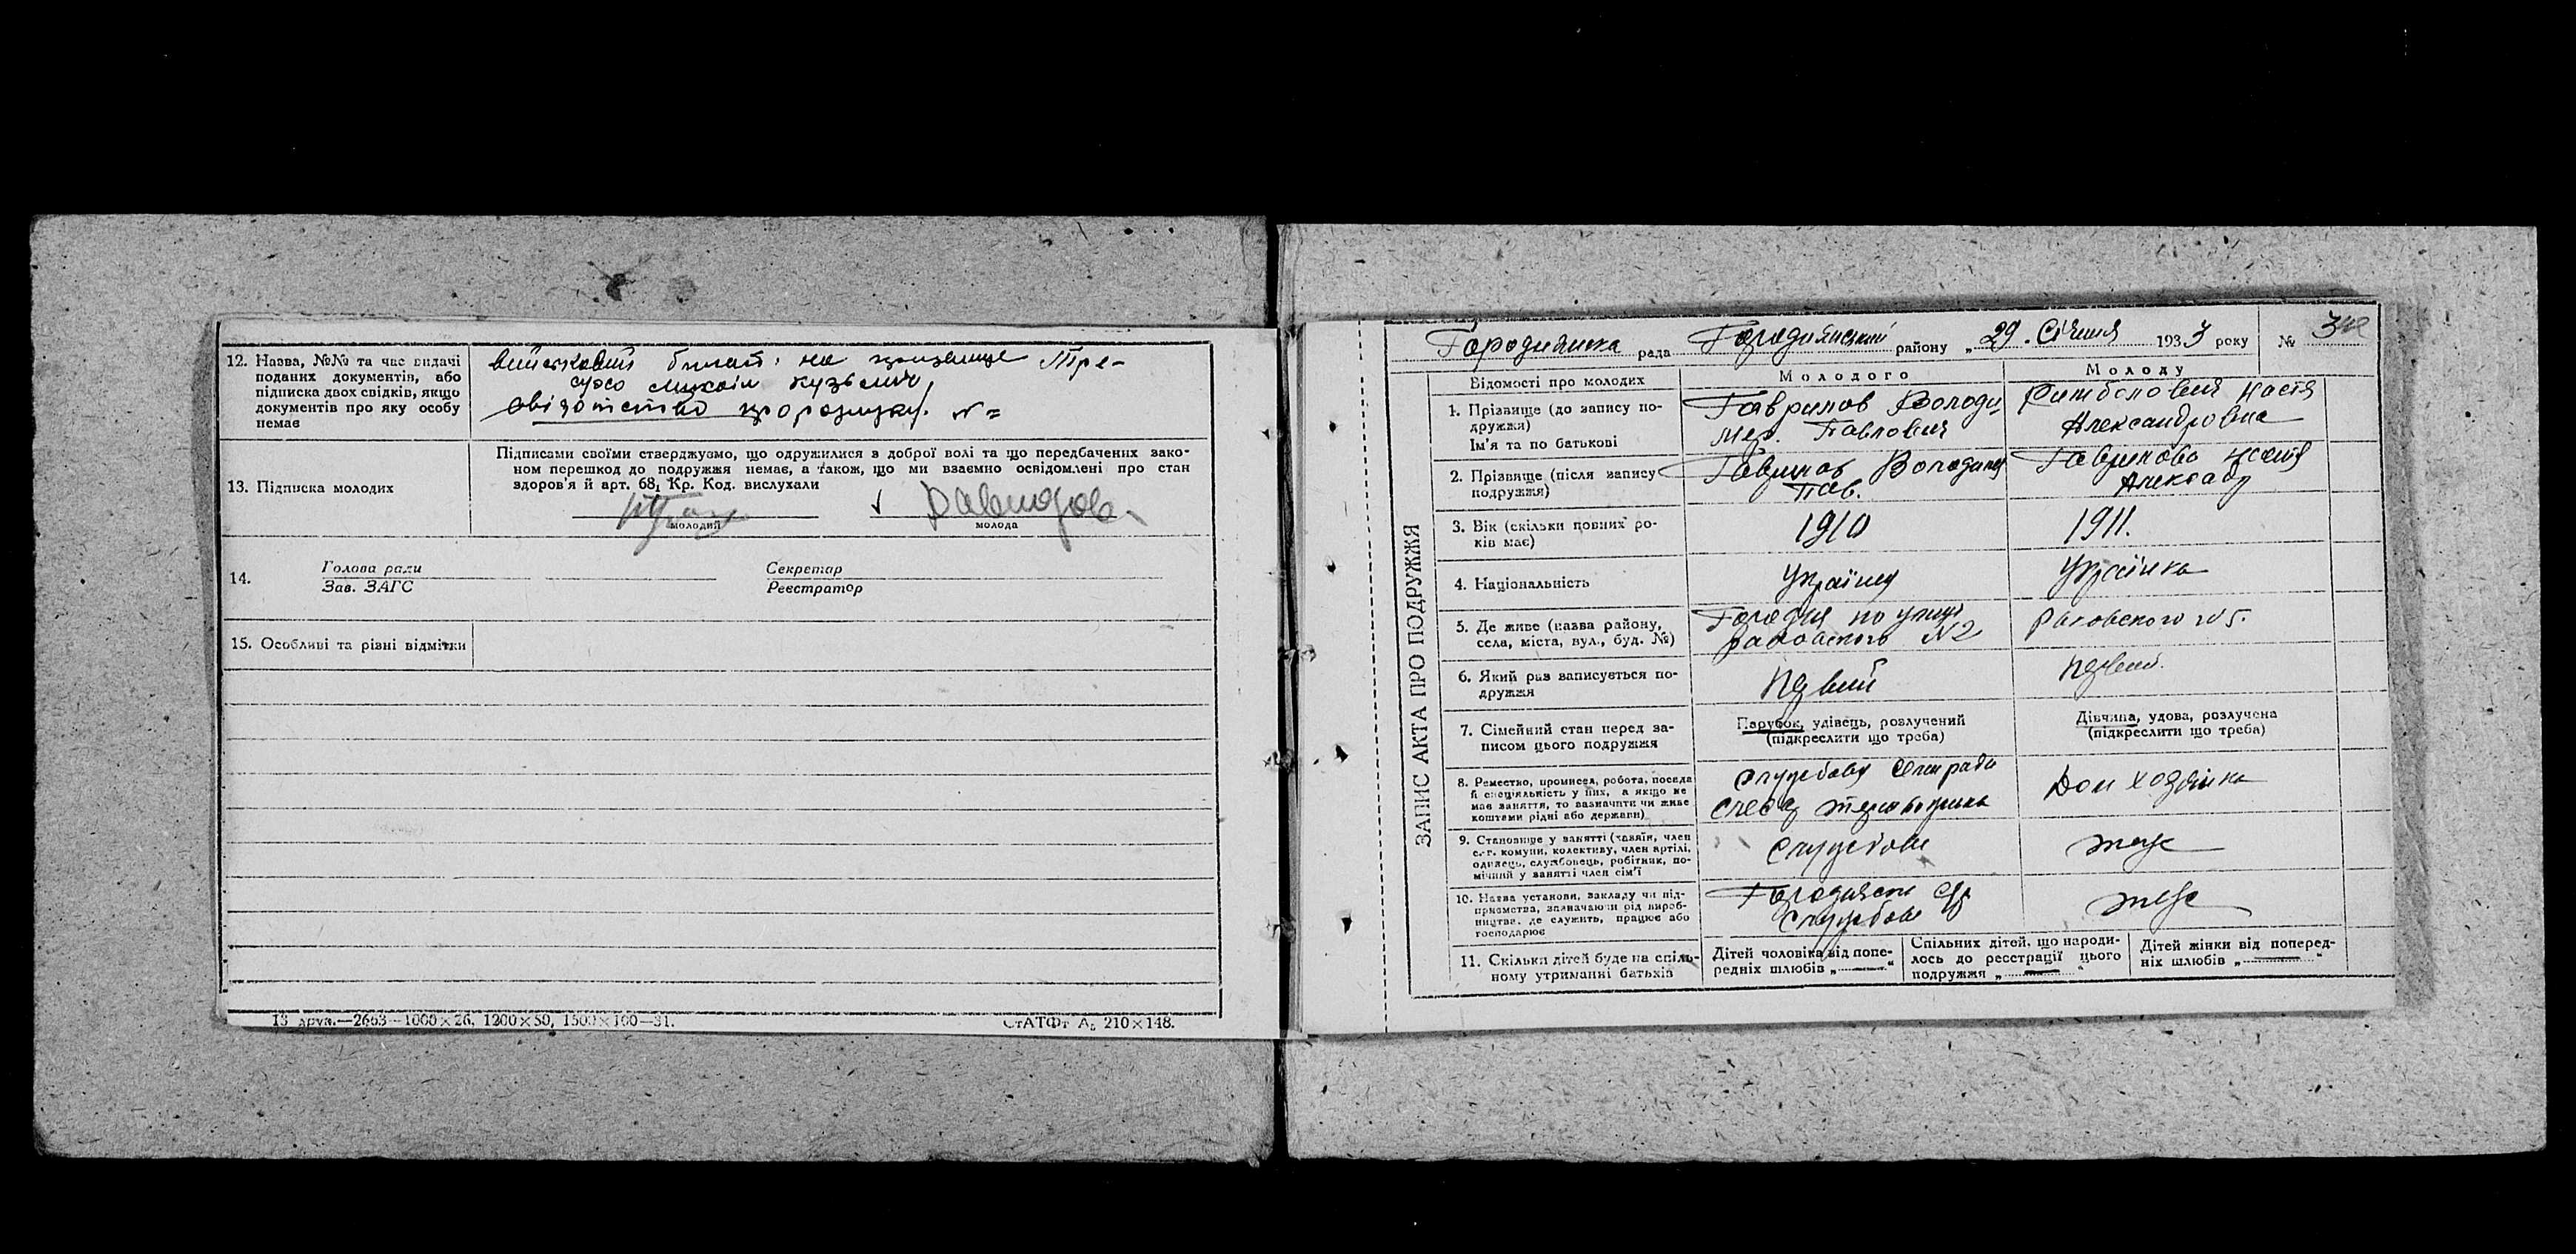 12. Назва, №№ та час видачі
поданих документів, або
підписка двох свідків, якщо
документів про яку особу
немає
військовий билет на прізвище Тре-
Кузьмич
13. Підписка молодих
Підписами своїми стверджуємо, що одружилися з доброї волі та що передбачених зако-
ном перешкод до подружжя немає, а також, що ми взаємно освідомлені про стан
здоров'я й арт. 68₁ Кр. Код. вислухали
молодий
молода
14.
Голова ради
Зав. ЗАГС
Секретар
Реєстратор
15. Особливі та різні відмітки
13 друк.—2663—1000×26, 1200×50, 1500×100—31.
СтАТФт А₅ 210×148.
ЗАПИС АКТА ПРО ПОДРУЖЖЯ
Городнянська рада Городнянський району „29. Січня 1933 року №
Відомості про молодих
Молодого
Молоду
1. Прізвище (до запису по-
дружжя)
Ім'я та по батькові
Гаврилов Володи
мер. Павлович
Настя
Александровна
2. Прізвище (після запису
подружжя)
Гаврилов Володимер
Пав.
Гаврилова Настя
Александр
3. Вік (скільки повних ро-
ків має)
1910
1911.
4. Національність
Українец
Українка
5. Де живе (назва району,
села, міста, вул., буд. №)
Городня по улиці
Раковского №2
Раковского №5.
6. Який раз записується по-
дружжя
Первий
Первий.
7. Сімейний стан перед за-
писом цього подружжя
Парубок, удівець, розлучений
(підкреслити що треба)
Дівчина, удова, розлучена
(підкреслити що треба)
8. Ремество, промисел, робота, посада
й спеціяльність у них, а якщо не
має заняття, то зазначити чи живе
коштами рідні або держави)
Дом хозяйка
9. Становище у занятті (хазяїн, член
с.-г. комуни, колективу, член артілі,
одинець, службовець, робітник, по-
мічний у занятті член сім'ї
Службове
теж
10. Назва установи, закладу чи під-
приємства, зазначаючи рід вироб-
ництва, де служить, працює або
господарює
Городянск
Службове
теж
11. Скільки дітей буде на спіль-
ному утриманні батьків
Дітей чоловіка від попе-
редніх шлюбів „—“
Спільних дітей, що народи-
лось до реєстрації цього
подружжя „—“
Дітей жінки від поперед-
ніх шлюбів „—“